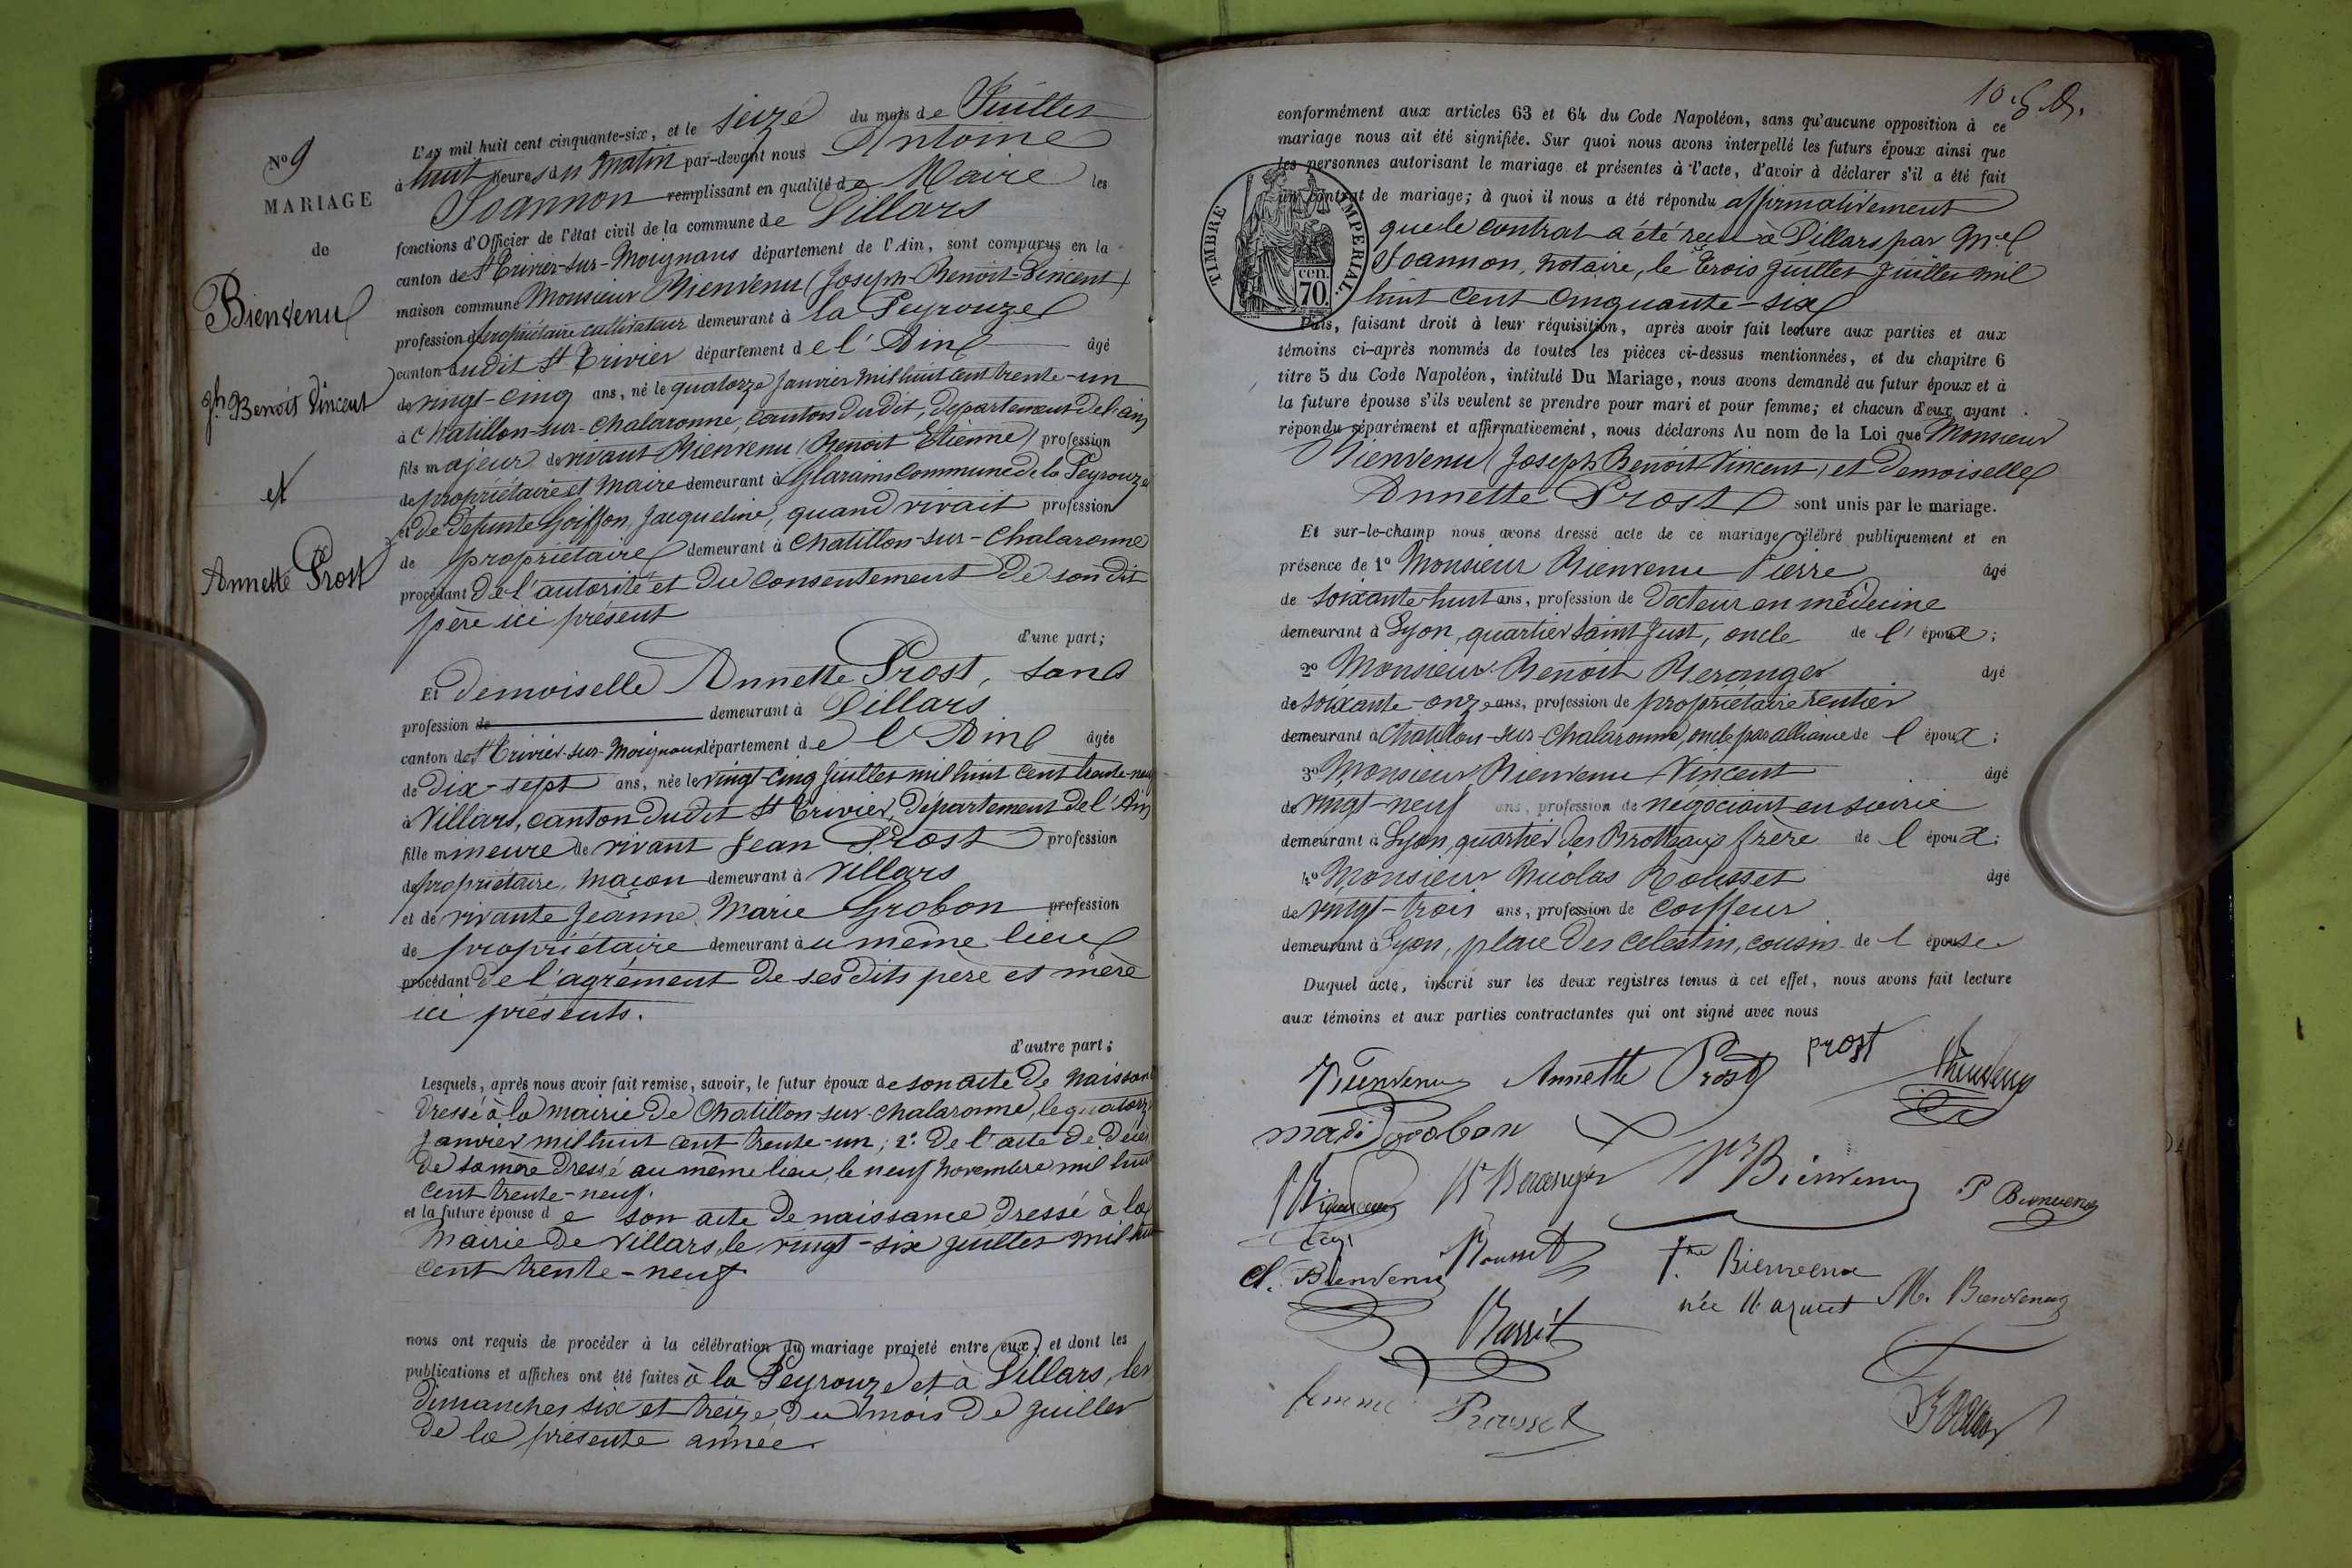 N° 9
MARIAGE
de
Bienvenu
Jh. Benoit Vincent
et
Annette Prost
L'an mil huit cent cinquante-six, et le seize du mois de Juillet
à huit heures du matin par-devant nous Antoine
Joannon remplissant en qualité de Maire les
fonctions d'Officier de l'état civil de la commune de Villars
canton de St Trivier-sur-Moignans département de l'Ain, sont comparus en la
maison commune Monsieur Bienvenu (Joseph-Benoit-Vincent)
profession de propriétaire cultivateur demeurant à la Peyrouze
canton dudit St Trivier département de l'Ain âgé
de vingt-cinq ans, né le quatorze Janvier mil huit cent trente-un
à Chatillon-sur-Chalaronne, canton dudit, département de l'ain
fils majeur de vivant Bienvenu (Benoit Etienne) profession
de propriétaire et Maire demeurant à Glarains commune de la Peyrouze
et de défunte Goiffon, Jacqueline, quand vivait profession
de propriétaire demeurant à Chatillon-sur-Chalaronne
procédant de l'autorité et du consentement de son dit
père ici présent
d'une part;
Et demoiselle Annette Prost, sans
profession de demeurant à Villars
canton de St Trivier-sur-Moignans département de l'Ain âgée
de dix-sept ans, née le vingt-cinq Juillet mil huit cent trente-neuf
à Villars, canton dudit St Trivier, département de l'Ain
fille mineure de vivant Jean Prost profession
de propriétaire, maçon demeurant à Villars
et de vivante Jeanne Marie Grobon profession
de propriétaire demeurant au même lieu
procédant de l'agrément de ses dits père et mère
ici présents.
d'autre part;
Lesquels, après nous avoir fait remise, savoir, le futur époux de son acte de naissance
dressé à la mairie de Chatillon-sur-Chalaronne, le quatorze
Janvier mil huit cent trente-un; 2° de l'acte de décès
de sa mère dressé au même lieu, le neuf novembre mil huit
cent trente-neuf.
et la future épouse de son acte de naissance dressé à la
Mairie de Villars, le vingt-six juillet mil huit
cent trente-neuf
nous ont requis de procéder à la célébration du mariage projeté entre eux, et dont les
publications et affiches ont été faites à la Peyrouze et à Villars, les
dimanches six et treize du mois de juillet
de la présente année.
10.
conformément aux articles 63 et 64 du Code Napoléon, sans qu'aucune opposition à ce
mariage nous ait été signifiée. Sur quoi nous avons interpellé les futurs époux ainsi que
les personnes autorisant le mariage et présentes à l'acte, d'avoir à déclarer s'il a été fait
un contrat de mariage; à quoi il nous a été répondu affirmativement
que le contrat a été reçu à Villars par Me
Joannon, notaire, le trois Juillet Juillet mil
huit cent cinquante-six
TIMBRE IMPERIAL
cen.
70.
Puis, faisant droit à leur réquisition, après avoir fait lecture aux parties et aux
témoins ci-après nommés de toutes les pièces ci-dessus mentionnées, et du chapitre 6
titre 5 du Code Napoléon, intitulé Du Mariage, nous avons demandé au futur époux et à
la future épouse s'ils veulent se prendre pour mari et pour femme; et chacun d'eux ayant
répondu séparément et affirmativement, nous déclarons Au nom de la Loi que Monsieur
Bienvenu (Joseph Benoit Vincent) et demoiselle
Annette Prost sont unis par le mariage.
Et sur-le-champ nous avons dressé acte de ce mariage célébré publiquement et en
présence de 1° Monsieur Bienvenu Pierre âgé
de soixante-huit ans, profession de Docteur en médecine
demeurant à Lyon, quartier Saint Just, oncle de l'époux;
2° Monsieur Benoit Beranger âgé
de soixante-onze ans, profession de propriétaire rentier
demeurant à Chatillon-sur-Chalaronne, oncle par alliance de l'époux;
3° Monsieur Bienvenu Vincent âgé
de vingt-neuf ans, profession de négociant en soirie
demeurant à Lyon, quartier des Brotteaux frère de l'époux;
4° Monsieur Nicolas Rousset âgé
de vingt-trois ans, profession de coiffeur
demeurant à Lyon, place des Celestin, cousin de l'épouse
Duquel acte, inscrit sur les deux registres tenus à cet effet, nous avons fait lecture
aux témoins et aux parties contractantes qui ont signé avec nous
Bienvenu Annette Prost prost Bienvenu
Grobon
Bt Beranger Vt Bienvenu P Bienvenu
Rousset
Bienvenu
Cl. Bienvenu née M. Bienvenu
femme Rousset